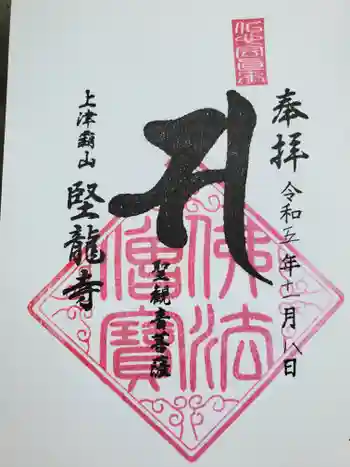 奉拝 令和五年十一月八日
聖観音菩薩
佛法僧寶
上津 山 堅龍寺